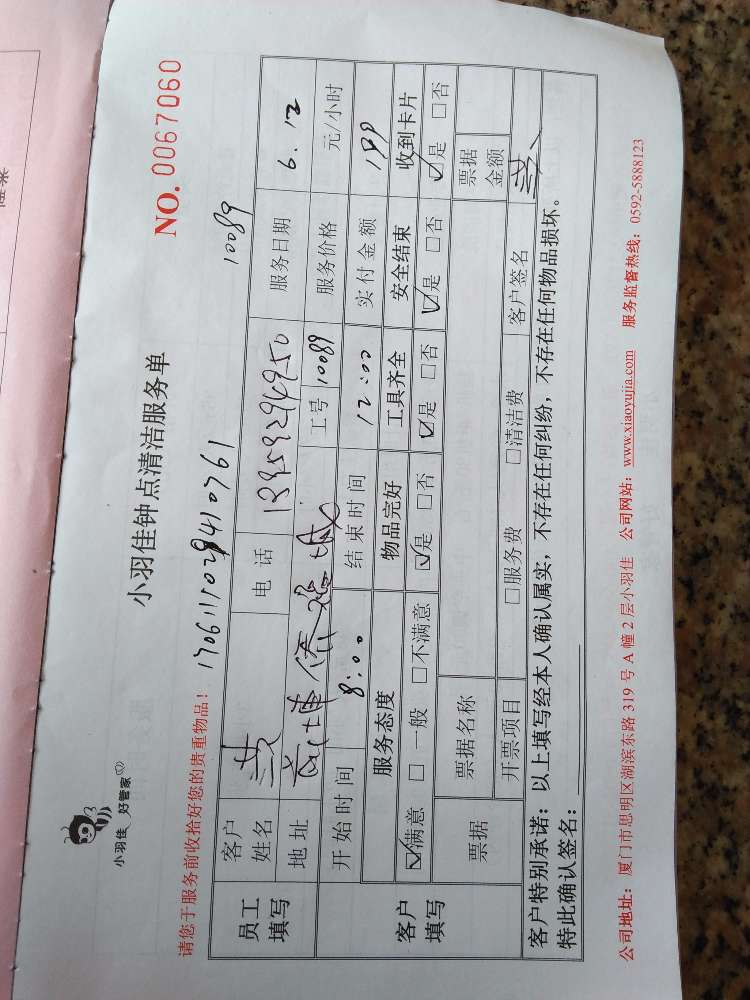 小羽佳 好管家
小羽佳钟点清洁服务单
NO. 0067060
请您于服务前收拾好您的贵重物品！
10089
员工填写 客户姓名 黄 电话 服务日期 6.12
地址 工号 10089 服务价格 元/小时
客户填写 开始时间 8:00 结束时间 12:00 实付金额
服务态度 物品完好 工具齐全 安全结束 收到卡片
☑满意 □一般 □不满意 ☑是 □否 ☑是 □否 ☑是 □否 ☑是 □否
票据 票据名称 票据金额
开票项目 □服务费 □清洁费 客户签名
客户特别承诺：以上填写经本人确认属实，不存在任何纠纷，不存在任何物品损坏。
特此确认签名：
公司地址：厦门市思明区湖滨东路 319 号 A 幢 2 层小羽佳 公司网站：www.xiaoyujia.com 服务监督热线：0592-5888123